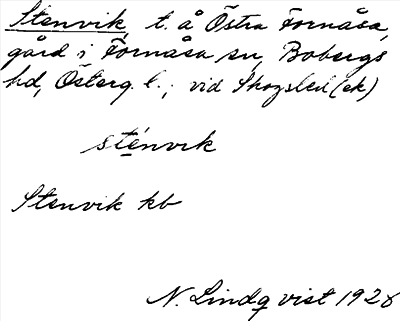 Stenvik, t. å Östra Fornåsa,
gård i Fornåsa sn, Bobergs
hd, Österg. l.; vid Skogsled (ek)
sténvik
Stenvik kb
N. Lindqvist 1926